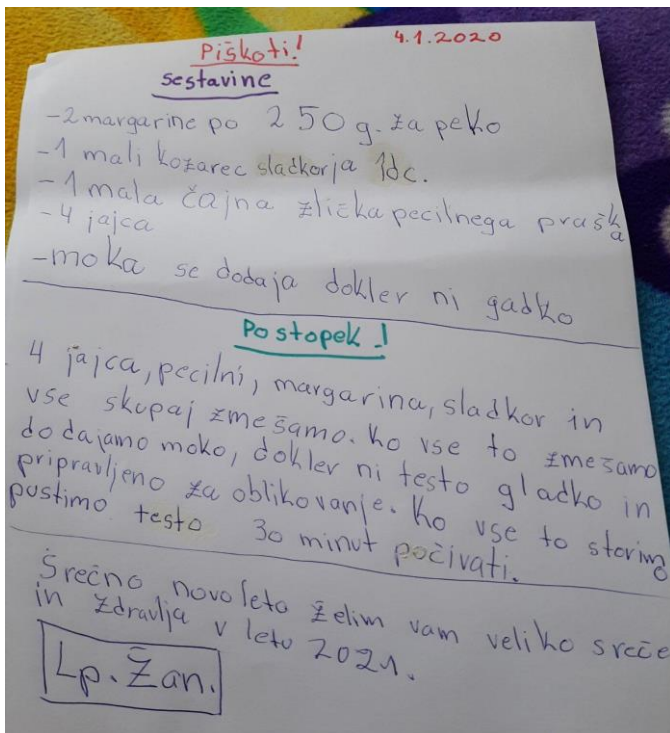 Piškoti! 4.1.2020
sestavine
-2 margarine po 250 g. za peko
-1 mali kozarec sladkorja 1dc.
-1 mala čajna žlička pecilnega praška
-4 jajca
-moka se dodaja dokler ni gadko
Postopek!
4 jajca, pecilni, margarina, sladkor in
vse skupaj zmešamo. Ko vse to zmešamo
dodajamo moko, dokler ni testo gladko in
pripravljeno za oblikovanje. Ko vse to storimo
pustimo testo 30 minut počivati.
Srečno novo leto želim vam veliko sreče
in zdravlja v letu 2021.
Lp. Žan.